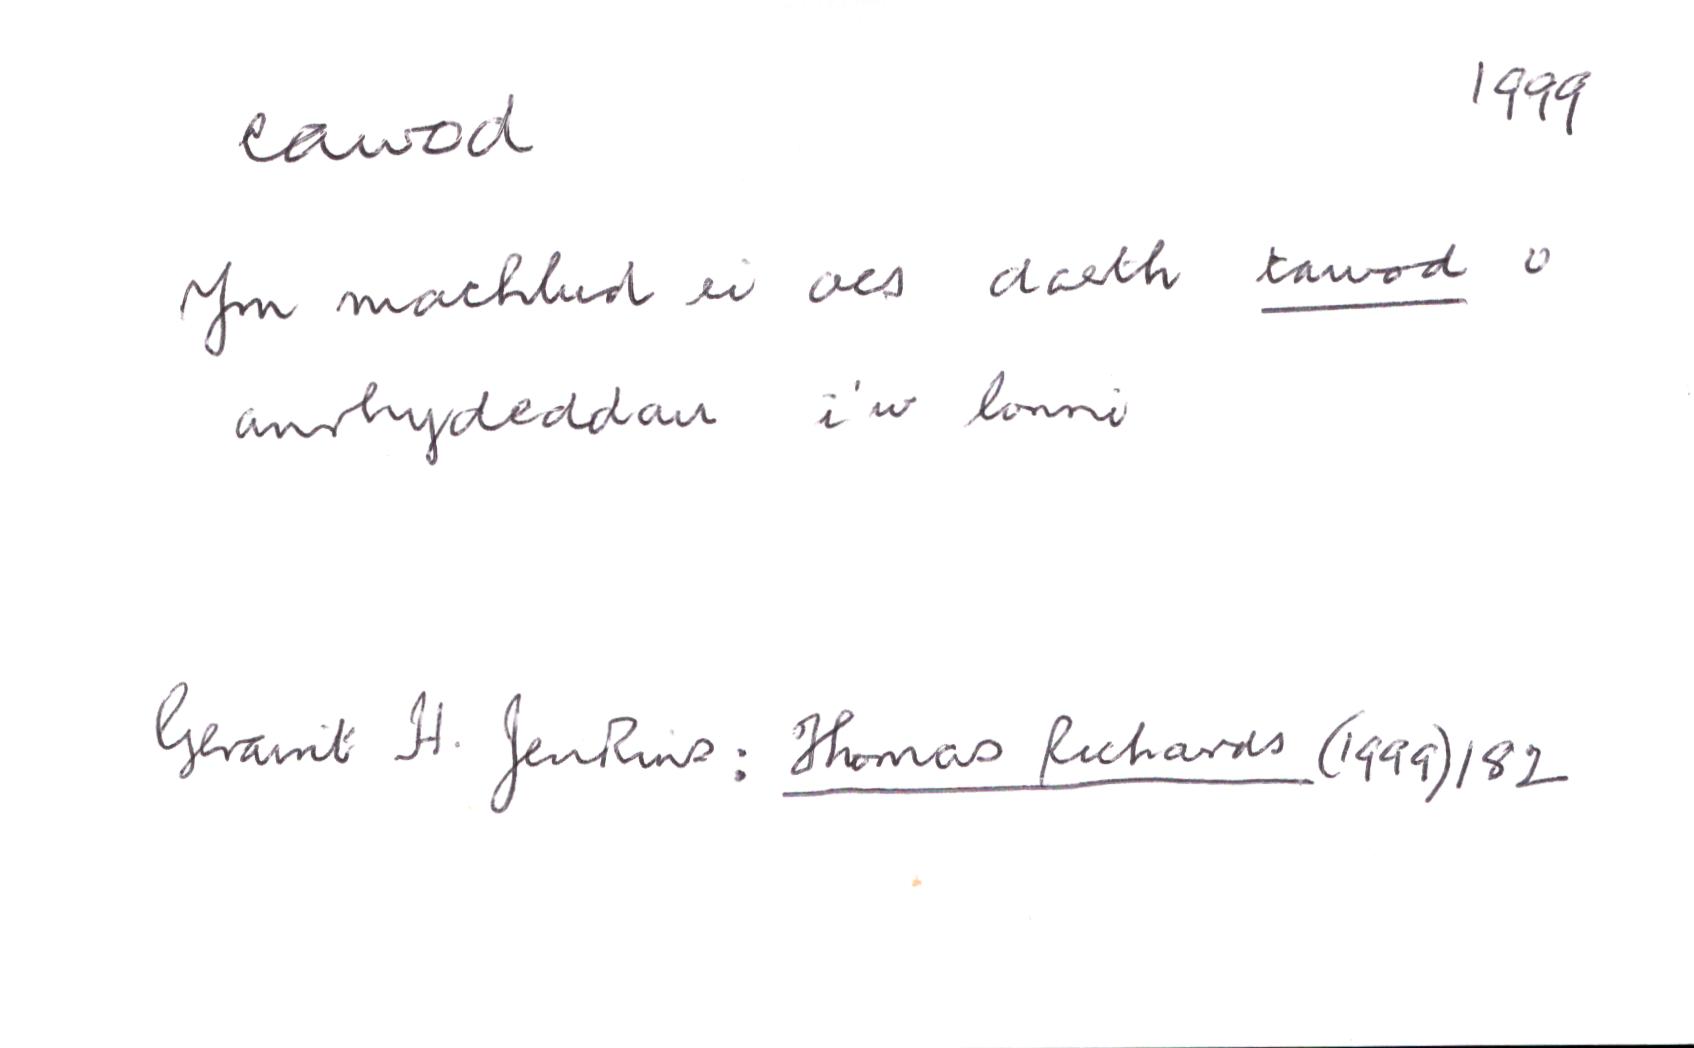 cawod 1999
Ym machlud ei oes daeth cawod o
anrhydeddau i'w lonni
Geraint H. Jenkins: Thomas Richards (1999) 182